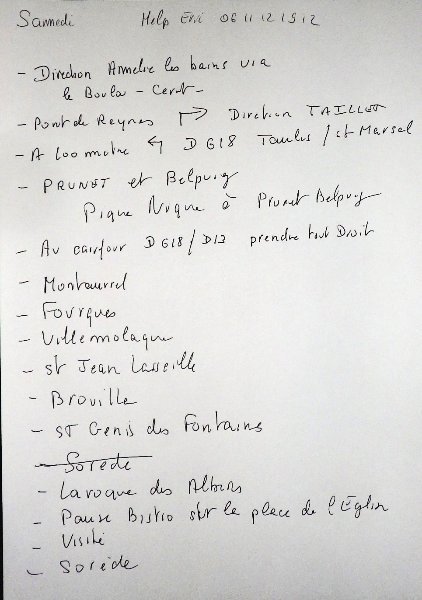 Samedi Help Eri 06 11 12 15 12
- Direction Amelie les bains via
le Boulou - Ceret -
- Pont de Reynes ↱ Direction TAILLET
- A 100 metre ↰ D 618 Taulis / st Marsal
- PRUNET et Belpuig
Pique Nique à Prunet Belpuig
- Au carrfour D 618 / D13 prendre tout Droit
- Montauriol
- Fourques
- Villemolaque
- st Jean Lasseille
- Brouilla
- ST Genis des Fontains
- Sorède
- Laroque des Albères
- Pause Bistro sur la place de l'Eglise
- Visite
- Sorède